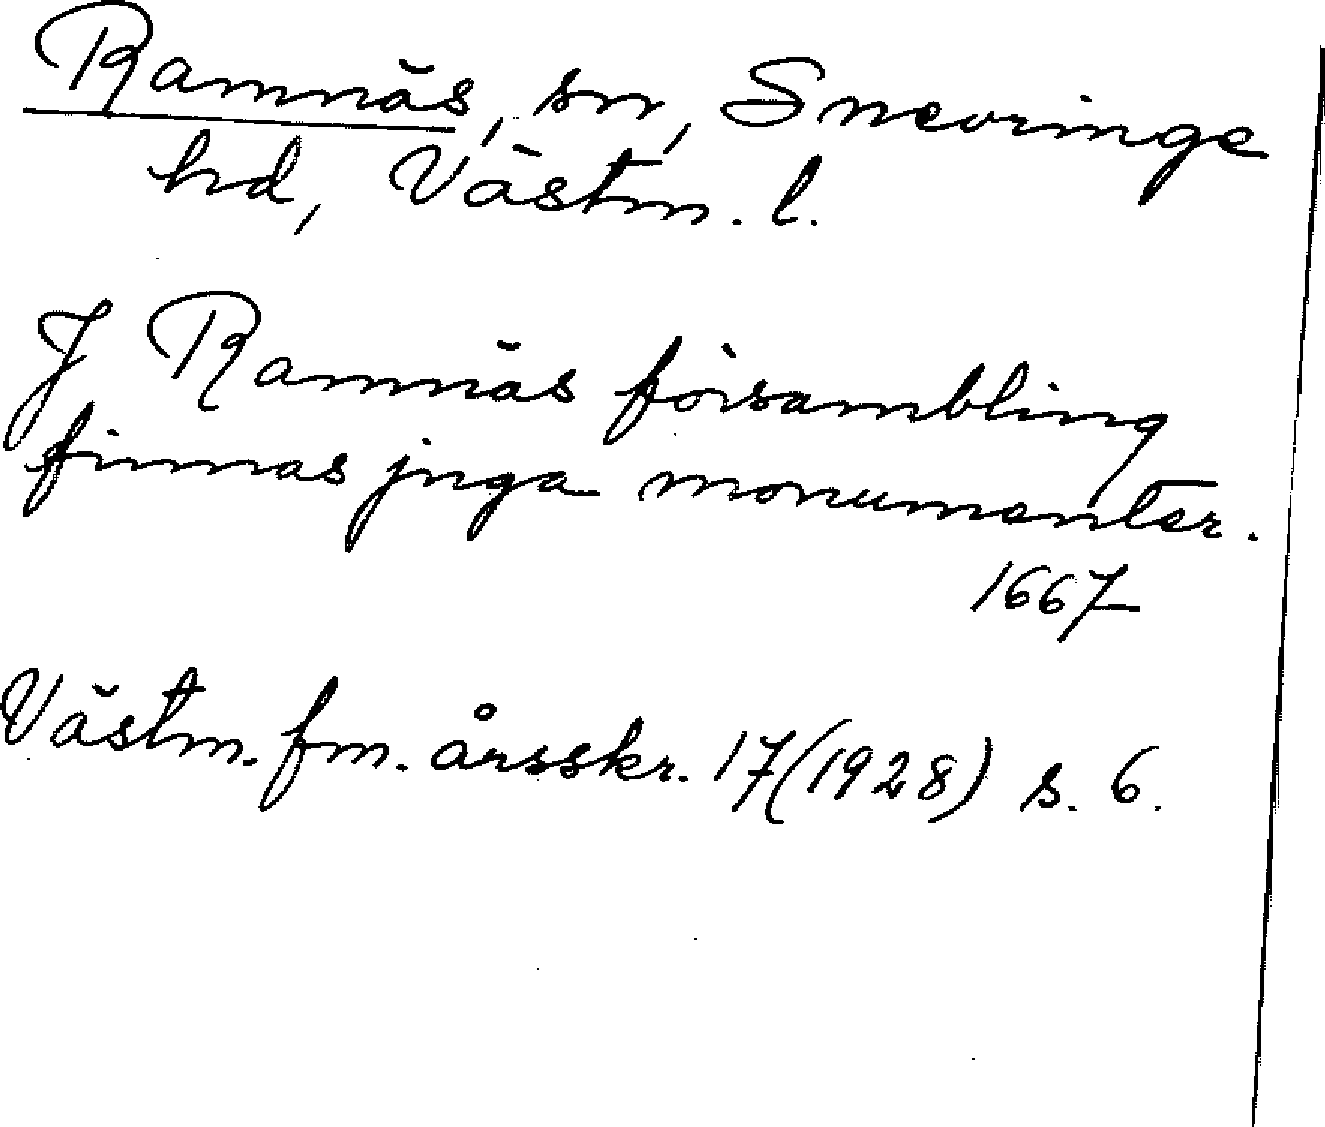 Ramnäs, sn, Snevringe
hd, Västm. l.
J Ramnäs försambling
finnas jnga monumenter.
1667
Västm. fm. årsskr. 17 (1928) s. 6.